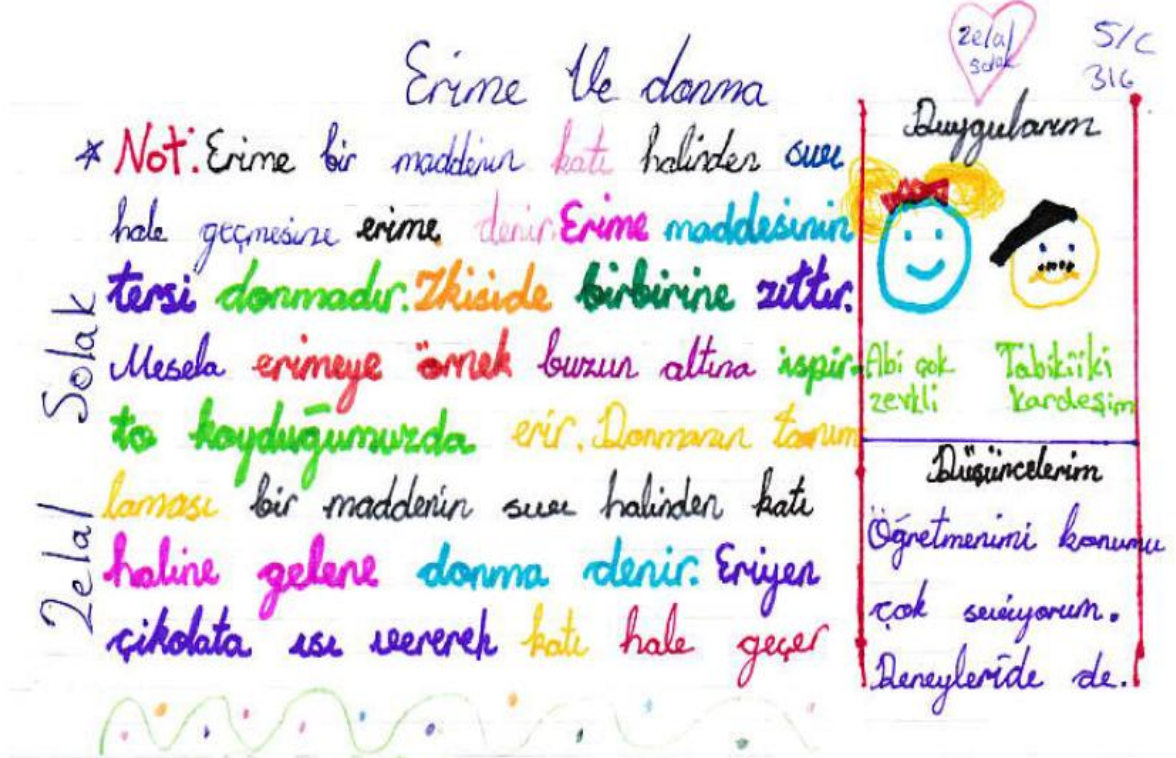 Zelal
Solak
5/C
316
Erime Ve donma
* Not: Erime bir maddenin katı halinden sıvı
hale geçmesine erime denir. Erime maddesinin
tersi donmadır. İkiside birbirine zıttır.
Mesela erimeye örnek buzun altına ispir-
to koyduğumuzda erir. Donmanın tanım
laması bir maddenin sıvı halinden katı
haline gelene donma denir. Eriyen
çikolata ısı vererek katı hale geçer
Zelal Solak
Duygularım
Abi çok
zevkli
Tabikiiki
kardeşim
Düşüncelerim
Öğretmenimi konumu
çok seviyorum.
Deneyleride de.